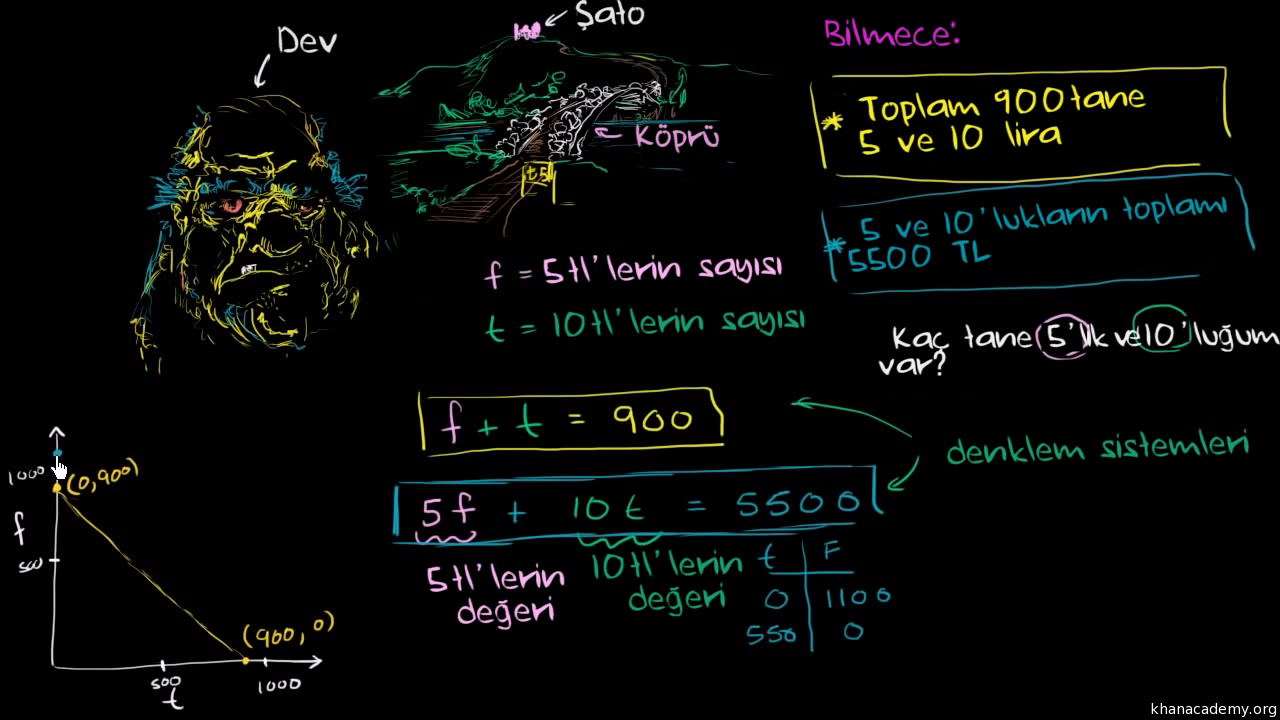 Dev
Şato
Köprü
t5
Bilmece:
* Toplam 900 tane
5 ve 10 lira
* 5 ve 10'lukların toplamı
5500 TL
f = 5tl'lerin sayısı
t = 10tl'lerin sayısı
Kaç tane 5'lik ve 10'luğum
var?
f + t = 900
denklem sistemleri
5f + 10t = 5500
5tl'lerin
değeri
10tl'lerin
değeri
t F
0 1100
550 0
1000
(0,900)
f
500
(900, 0)
500
1000
t
khanacademy.org